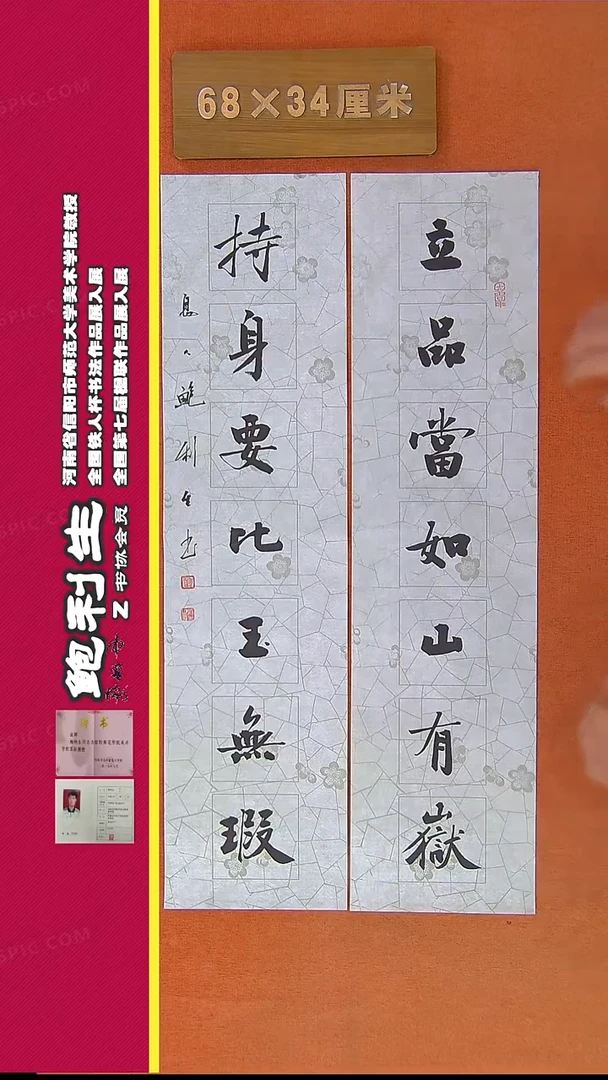 68×34厘米
立品當如山有嶽
持身要比玉無瑕
息人鲍利生书
河南省信阳市师范大学美术学院教授
全国铁人杯书法作品展入展
全国第七届楹联作品展入展
鲍利生
Z 书协会员
证书